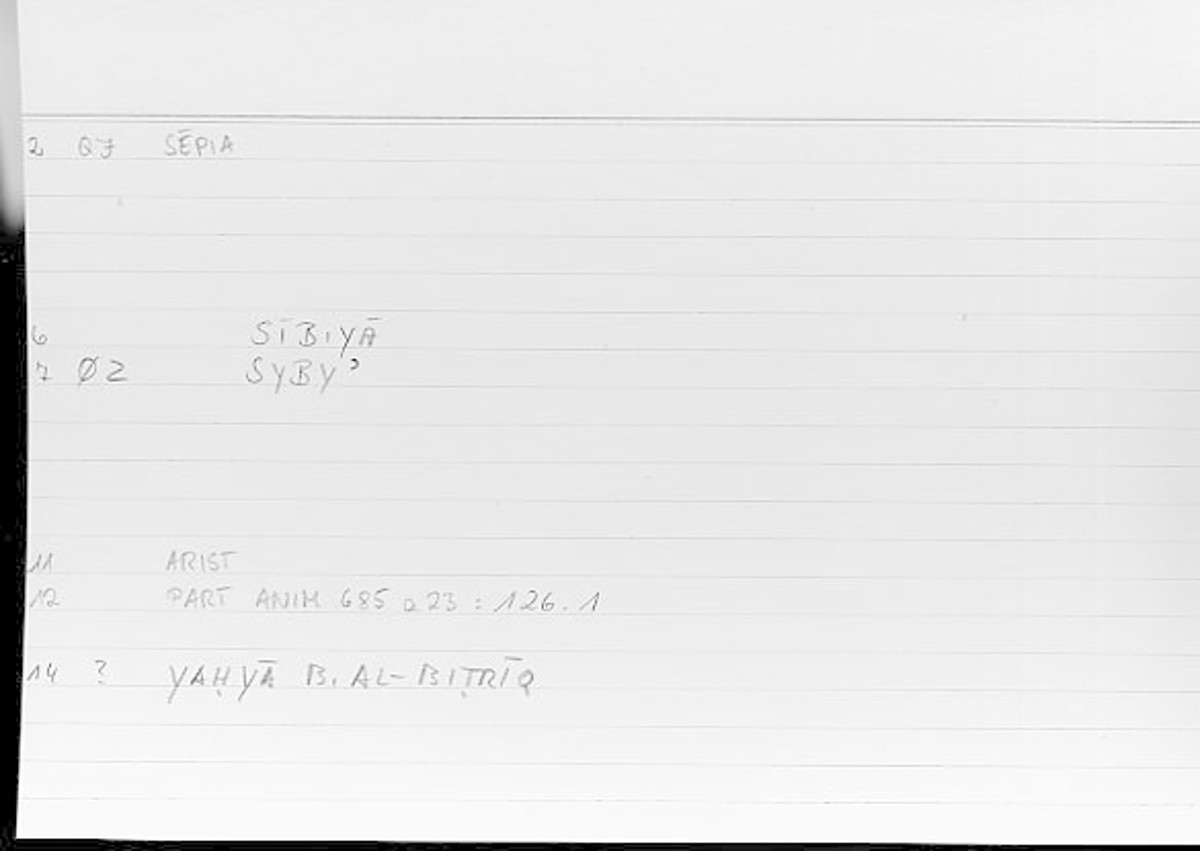 2 Q7 SĒPIA
6 SĪBIYĀ
7 Ø2 SYBYʾ
11 ARIST
12 PART ANIM 685 a 23 : 126.1
14 ? YAḤYĀ B. AL-BIṬRĪQ